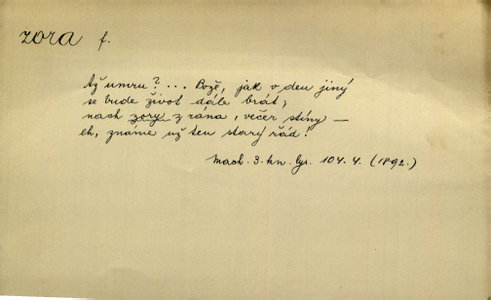 zora f.
Až umru? ... Bože, jak v den jiný
se bude život dále brát,
nach zory z rána, večer stíny —
eh, známe už ten starý řád!
Mach. 3. kn. lyr. 104. 4. (1892.)